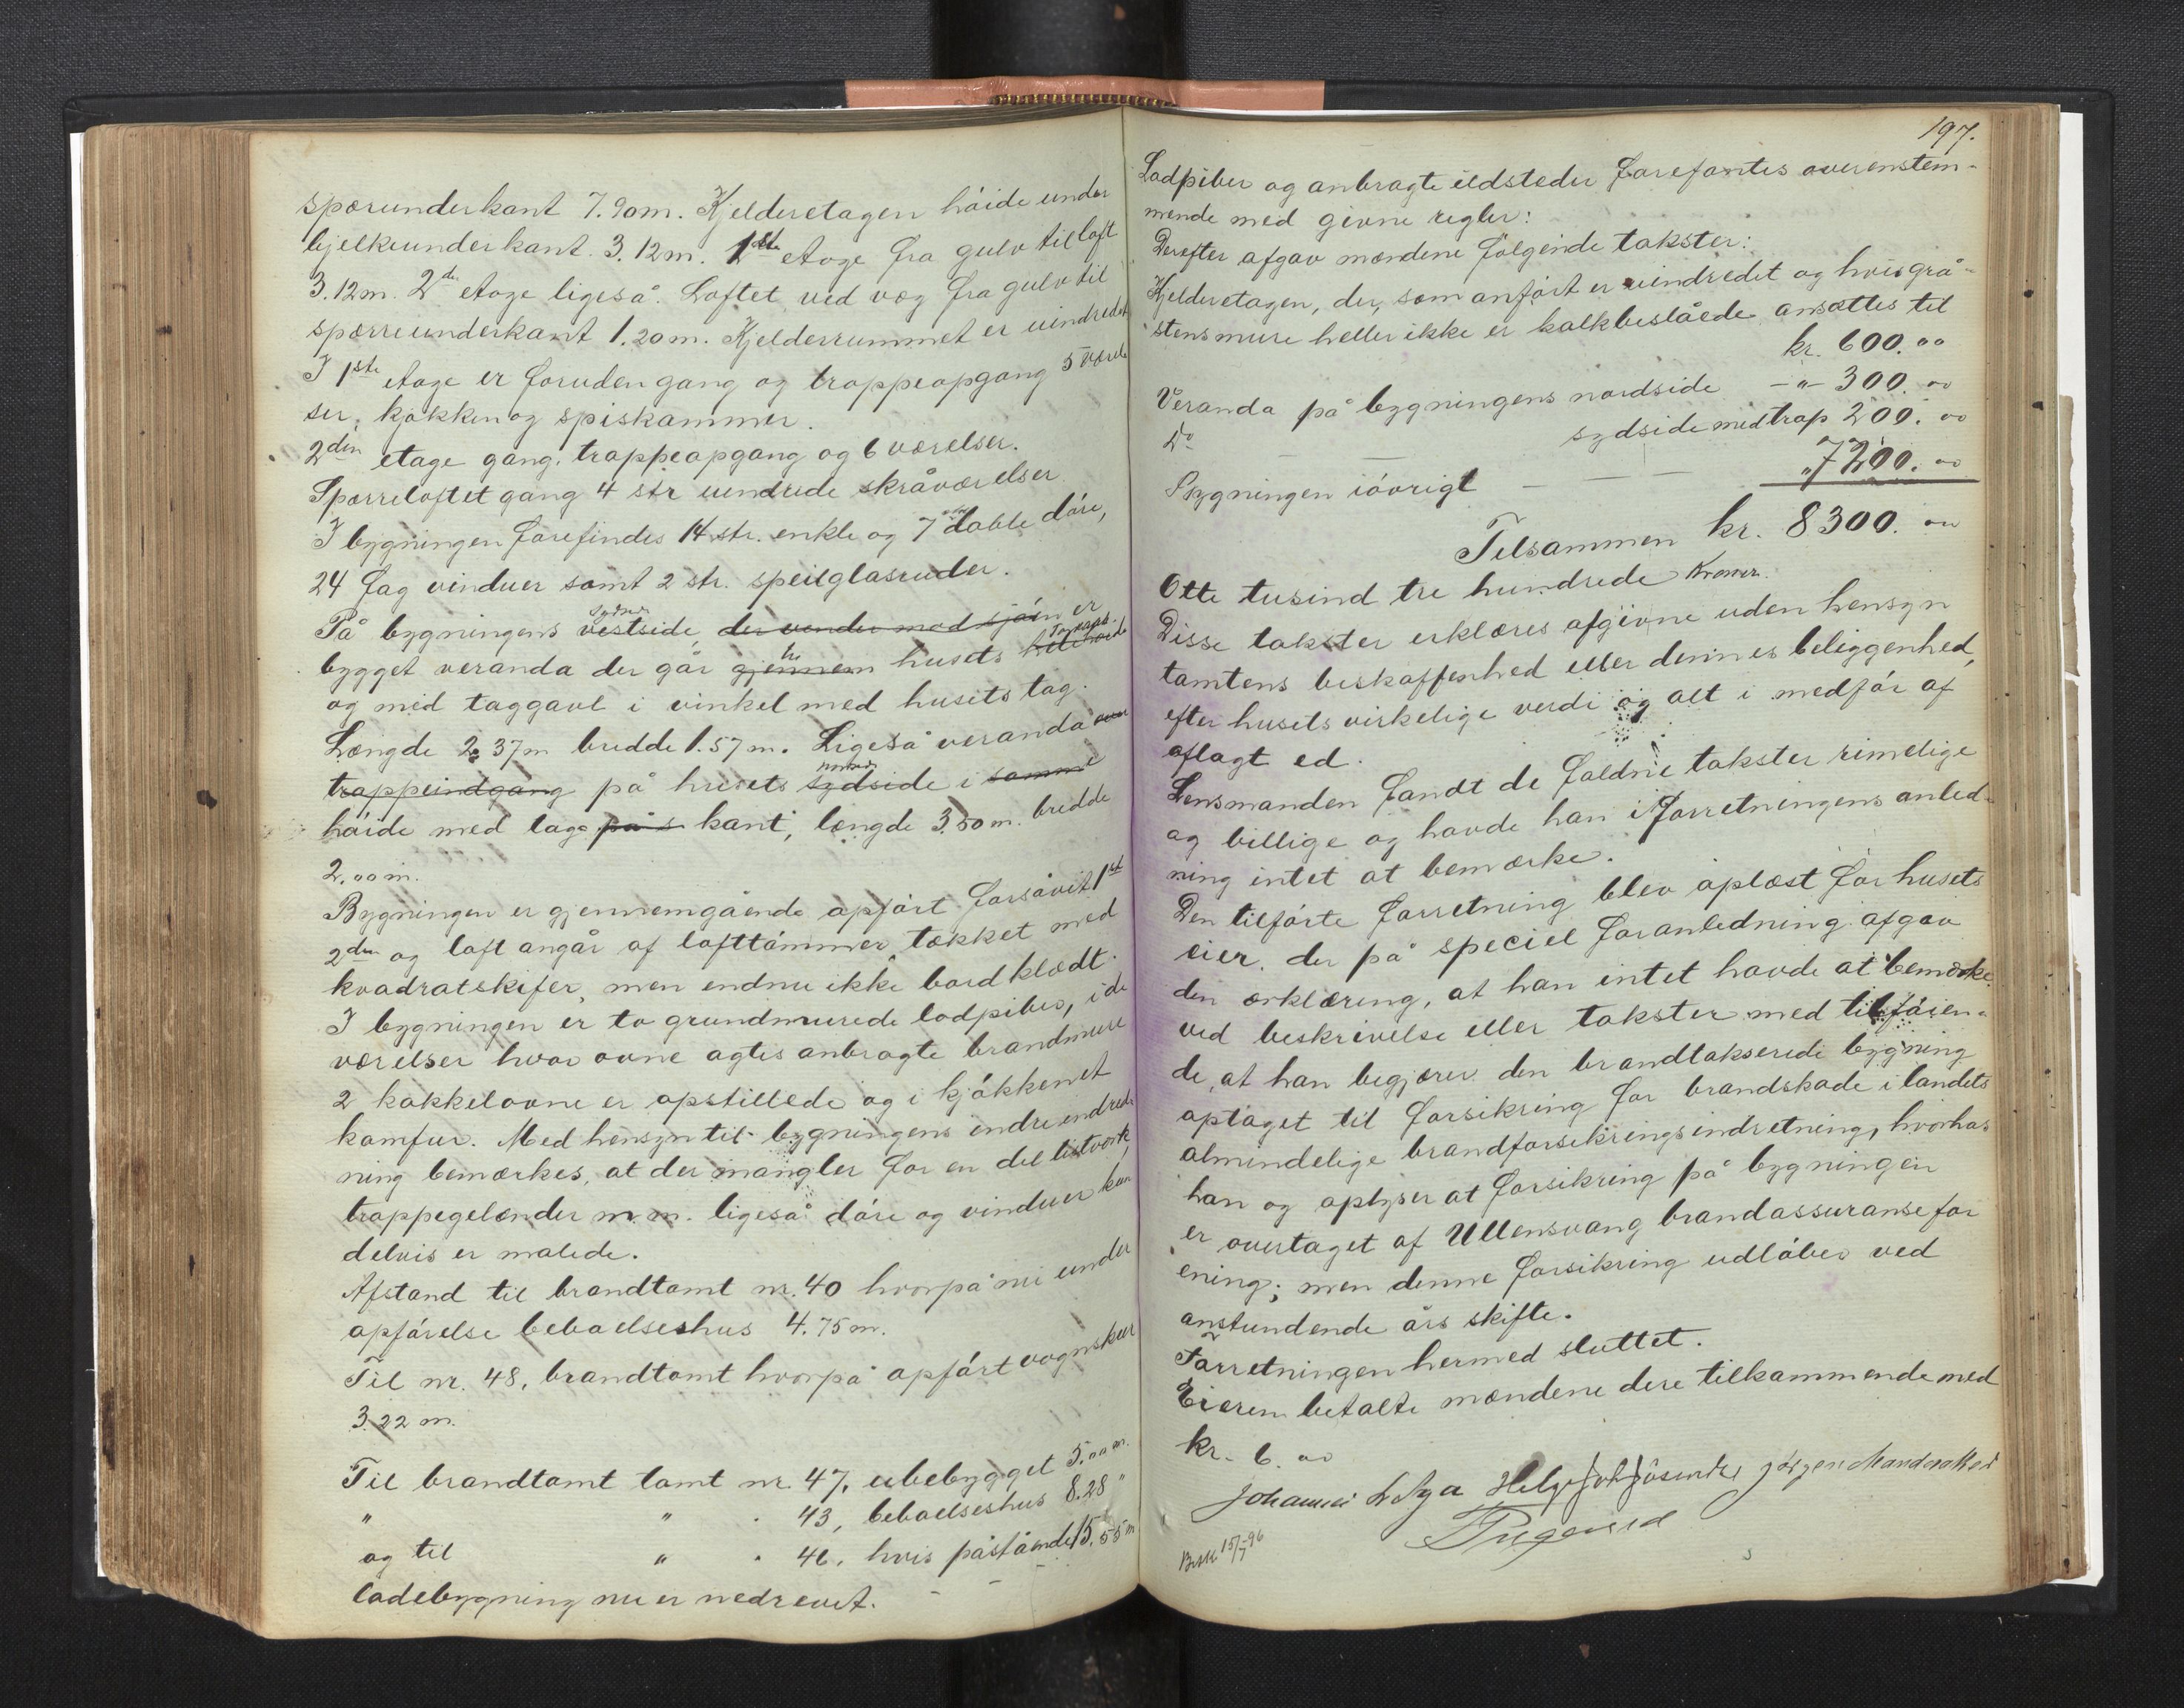 spærunderkant 7.90m. Kjelderetagen høide under
bjelkeunderkant 3.12m. 1ste etage fra gulv til loft
3.12m. 2den etage ligeså. Loftet ved væg fra gulv til
spærreunderkant 1.20m. Kjelderrummet er uindredet
I 1ste etage er foruden gang og trappeopgang 5 værel-
ser, kjøkken og spiskammer.
2den etage gang, trappeopgang og 6 værelser.
Spærreloftet gang 4 str uindrede skråværelser
I bygningen forefindes 14 str. enkle og 7 doble døre,
24 fag vinduer samt 2 str. speilglasruder.
På bygningens vestside, der vender mod sjøen er
bygget veranda der går gjennem husets
og med taggavl i vinkel med husets tag.
Længde 2.37m bredde 1.57m. Ligeså veranda over
trappeindgang på husets sydside i samme
høide med tage på s kant, længde 3.50m. bredde
2.00m.
Bygningen er gjennemgående opført forsåvit 1ste
2den og loft angår af lofttømmer tækket med
kvadratskifer, men endnu ikke bordklædt.
I bygningen er to grundmurede lodpiber, i de
værelser hvor ovne agtes anbragte brandmure
2 kakkelovne er opstillede og i kjøkkenet
komfur. Med hensyn til bygningens indre indred-
ning bemærkes, at der mangler for en del listværk,
trappegelænder m.m. ligeså døre og vinduer kun
delvis er malede.
Afstand til brandtomt nr. 40 hvorpå nu under
opførelse beboelseshus 4.75m.
Til nr. 48, brandtomt hvorpå opført vognskur
3.22 m.
Til brandtomt tomt nr. 47, ubebygget 5.00 m.
" " . 43, beboelseshus 8.28 "
og til " . 46, hvis påstående 15.55 m
ladebygning nu er nedrevet. - - -
197.
Lodpiber og anbragte ildsteder forefantes overenstem-
mende med givne regler:
Derefter afgav mændene følgende takster:
Kjelderetagen, der, som anført er uindredet og hvis grå-
stensmure heller ikke er kalkbeslåede ansættes til
kr. 600.00
Veranda på bygningens nordside -"- 300.00
Do sydside med trap 200.00
Bygningen iøvrigt - - " 7200.00
Tilsammen kr. 8300.00
Otte tusind tre hundrede Kroner.
Disse takster erklæres afgivne uden hensyn
tomtens beskaffenhed eller dennes beliggenhed,
efter husets virkelige verdi og alt i medfør af
aflagt ed.
Lensmanden fandt de faldne takster rimelige
og billige og havde han i forretningens anled-
ning intet at bemærke.
Den tilførte forretning blev oplæst for husets
eier, der på speciel foranledning afgav
den erklæring, at han intet havde at bemærke
ved beskrivelse eller takster med tilføien-
de, at han begjærer den brandtakserede bygning
optaget til forsikring for brandskade i landets
almindelige brandforsikringsindretning, hvorhos
han og oplyser at forsikring på bygningen
er overtaget af Ullensvang brandassuranse for
ening; men denne forsikring udløber ved
anstundende års skifte.
Forretningen hermed sluttet.
Eieren betalte mændene dere tilkommende med
kr. 6.00
Johannes Helge Jørgen
Besk. 15/7-96